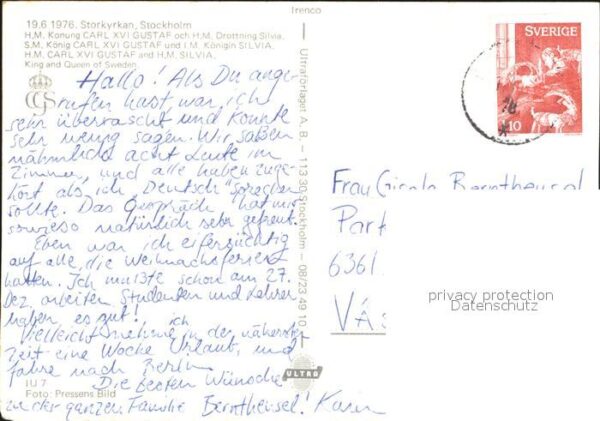 Irenco
19.6 1976. Storkyrkan, Stockholm
H.M. Konung CARL XVI GUSTAF och H.M. Drottning Silvia.
S.M. König CARL XVI GUSTAF und I.M. Königin SILVIA.
H.M. CARL XVI GUSTAF and H.M. SILVIA,
King and Queen of Sweden.
Hallo! Als Du ange-
rufen hast, war ich
sehr überrascht und konnte
sehr wenig sagen. Wir saßen
nähmlich acht Leute im
Zimmer, und alle haben zuge-
hört als ich "Deutsch" sprechen
sollte. Das Gespräch hat mich
sowieso natürlich sehr gefreut.
Eben war ich eifersüchtig
auf alle, die Weihnachsferien
hatten. Ich mußte schon am 27.
Dez. arbeiten. Studenten und Lehrer
haben es gut!
Vielleicht nehme ich in der nähersten
Zeit eine Woche Urlaub, und
fahre nach Berlin.
Die besten Wünsche
der ganzen Familie Berntheusel! Karin
IU 7
Foto: Pressens Bild
Ultraförlaget A.B. - 113 30 Stockholm - 08/23 49 10
ULTRA
SVERIGE
110
78
Frau Gisela Berntheusel
Park
6361
privacy protection
Datenschutz